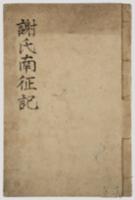 謝氏南征記